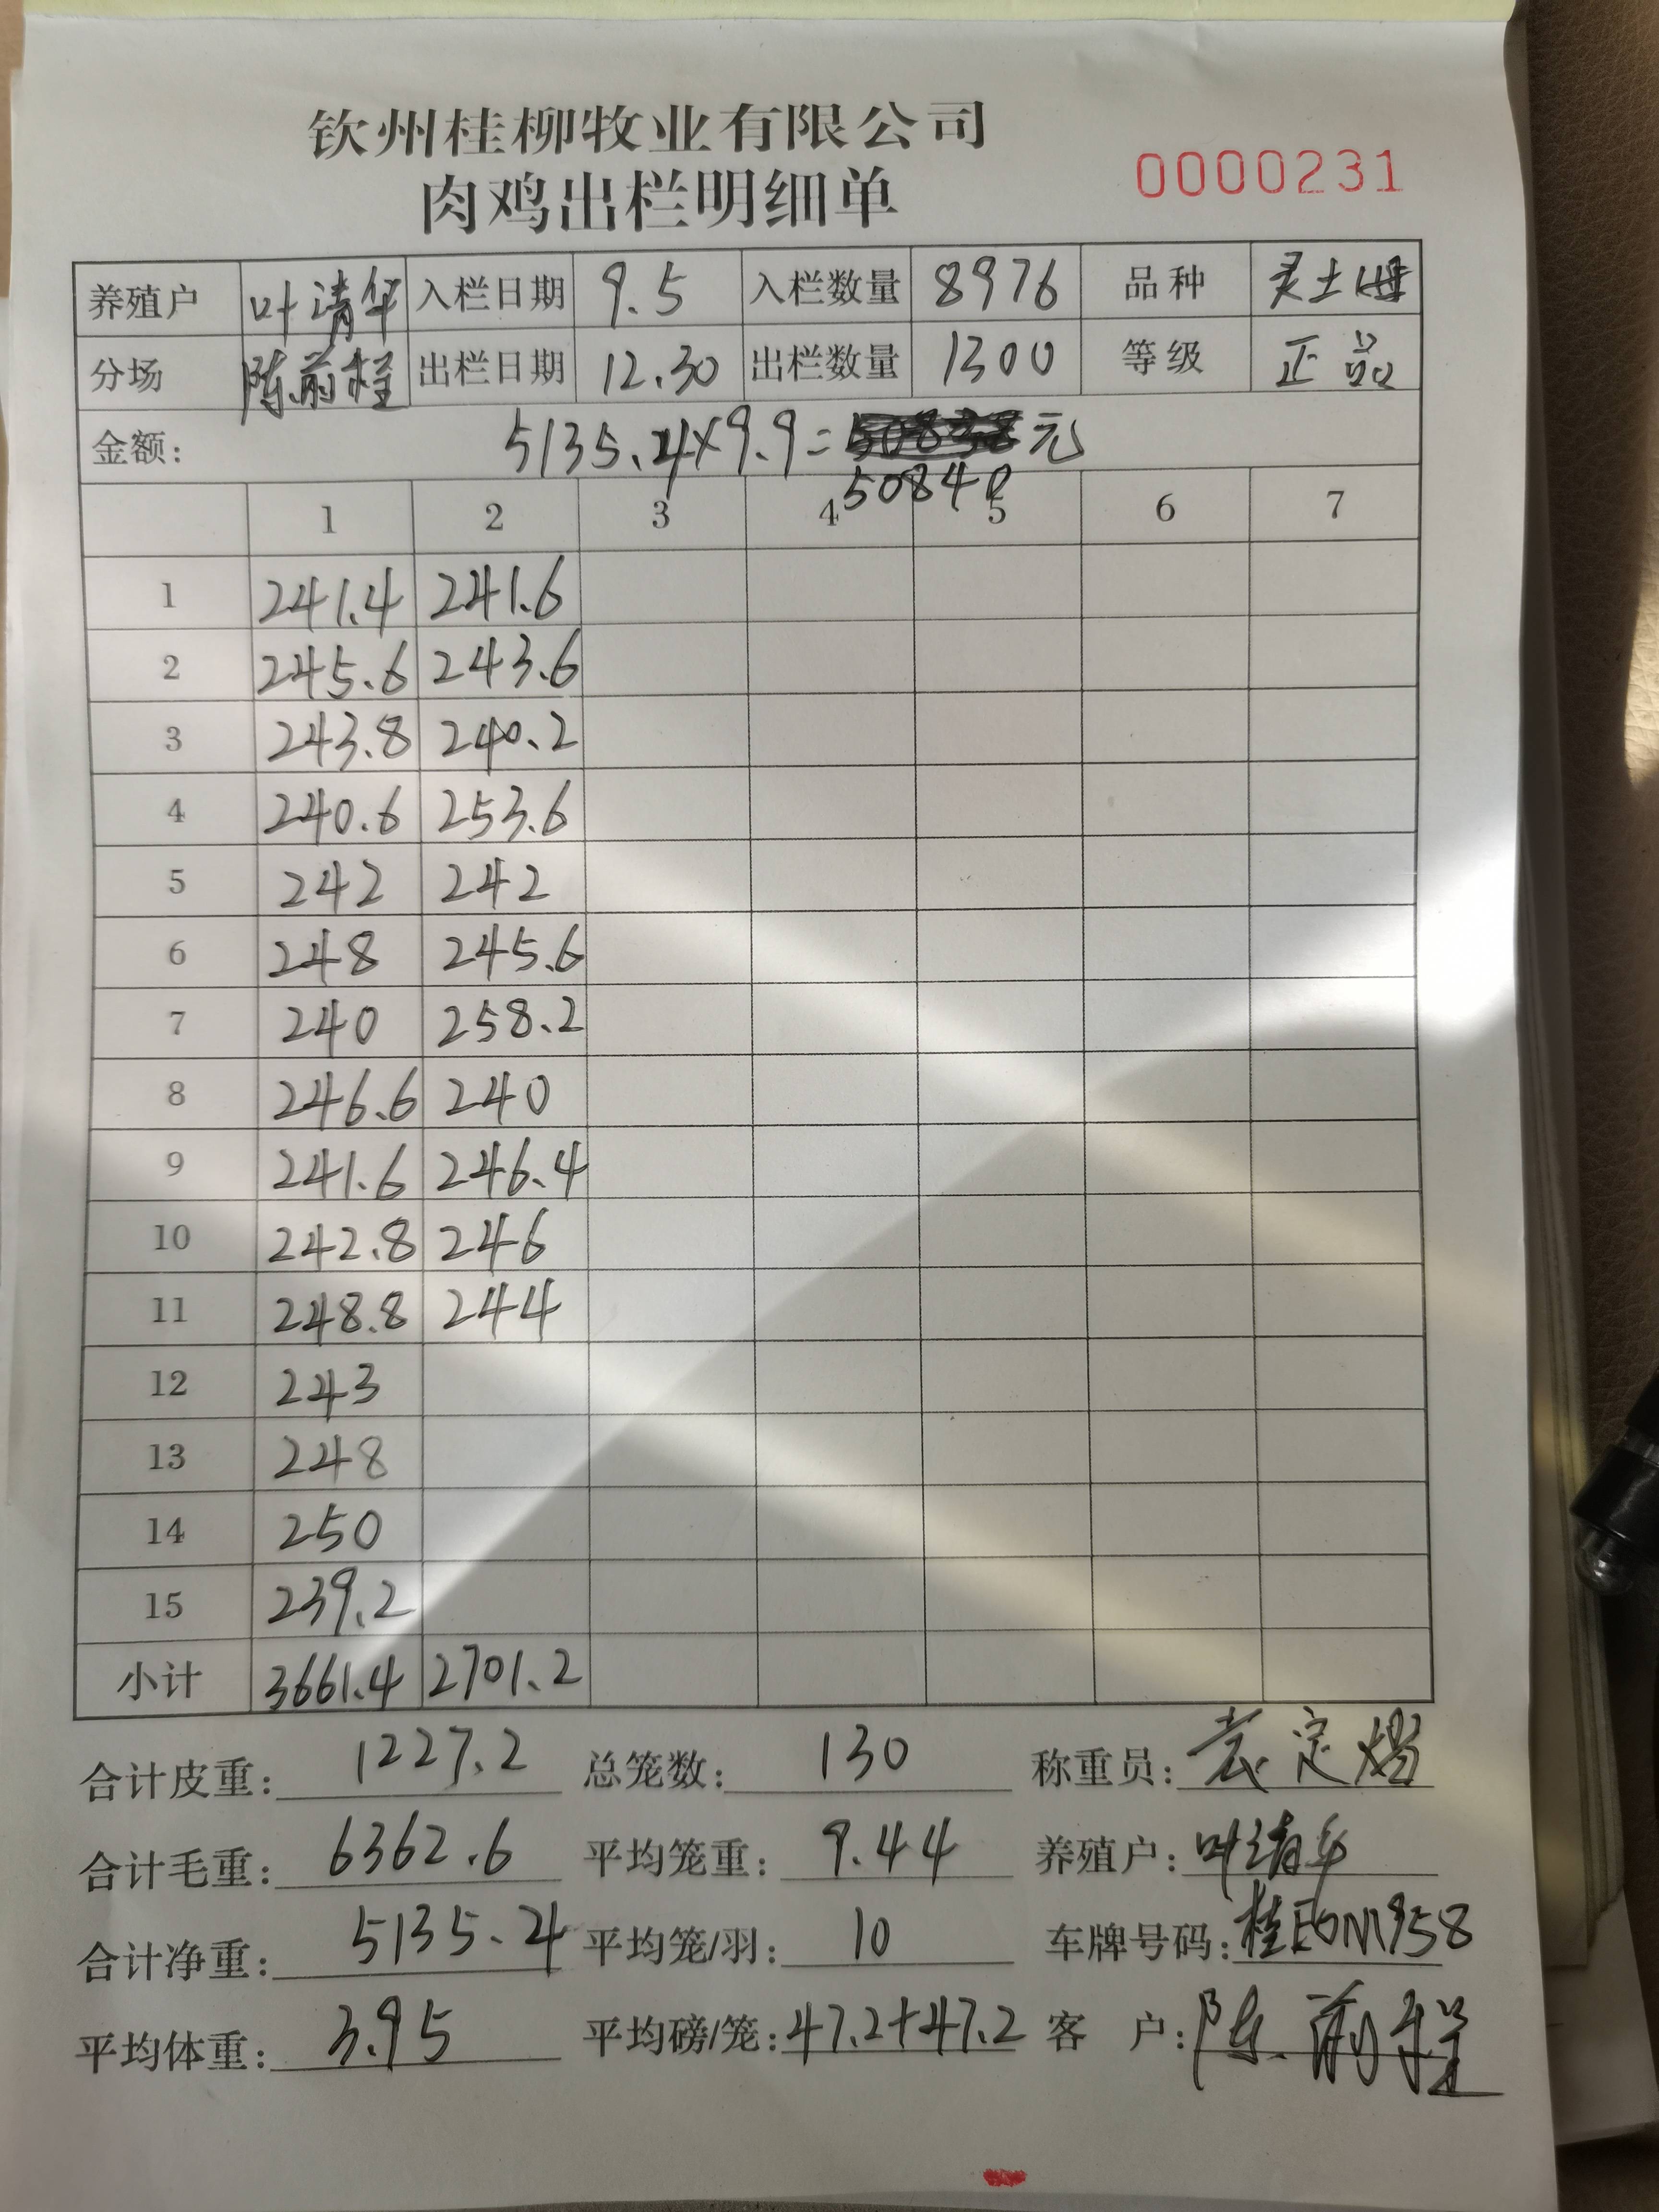 钦州桂柳牧业有限公司
肉鸡出栏明细单
0000231
养殖户 叶清年 入栏日期 9.5 入栏数量 8976 品种 灵土母
分场 陈前程 出栏日期 12.30 出栏数量 1300 等级 正品
金额: 5135.4×9.9= 元
50840
1 2 3 4 5 6 7
1 241.4 241.6
2 245.6 243.6
3 243.8 240.2
4 240.6 253.6
5 242 242
6 248 245.6
7 240 258.2
8 246.6 240
9 241.6 246.4
10 242.8 246
11 248.8 244
12 243
13 248
14 250
15 239.2
小计 3661.4 2701.2
合计皮重: 1227.2 总笼数: 130 称重员: 定
合计毛重: 6362.6 平均笼重: 9.44 养殖户: 叶清年
合计净重: 5135.4 平均笼/羽: 10 车牌号码:
平均体重: 3.95 平均磅/笼: 47.2+47.2 客 户: 陈前程